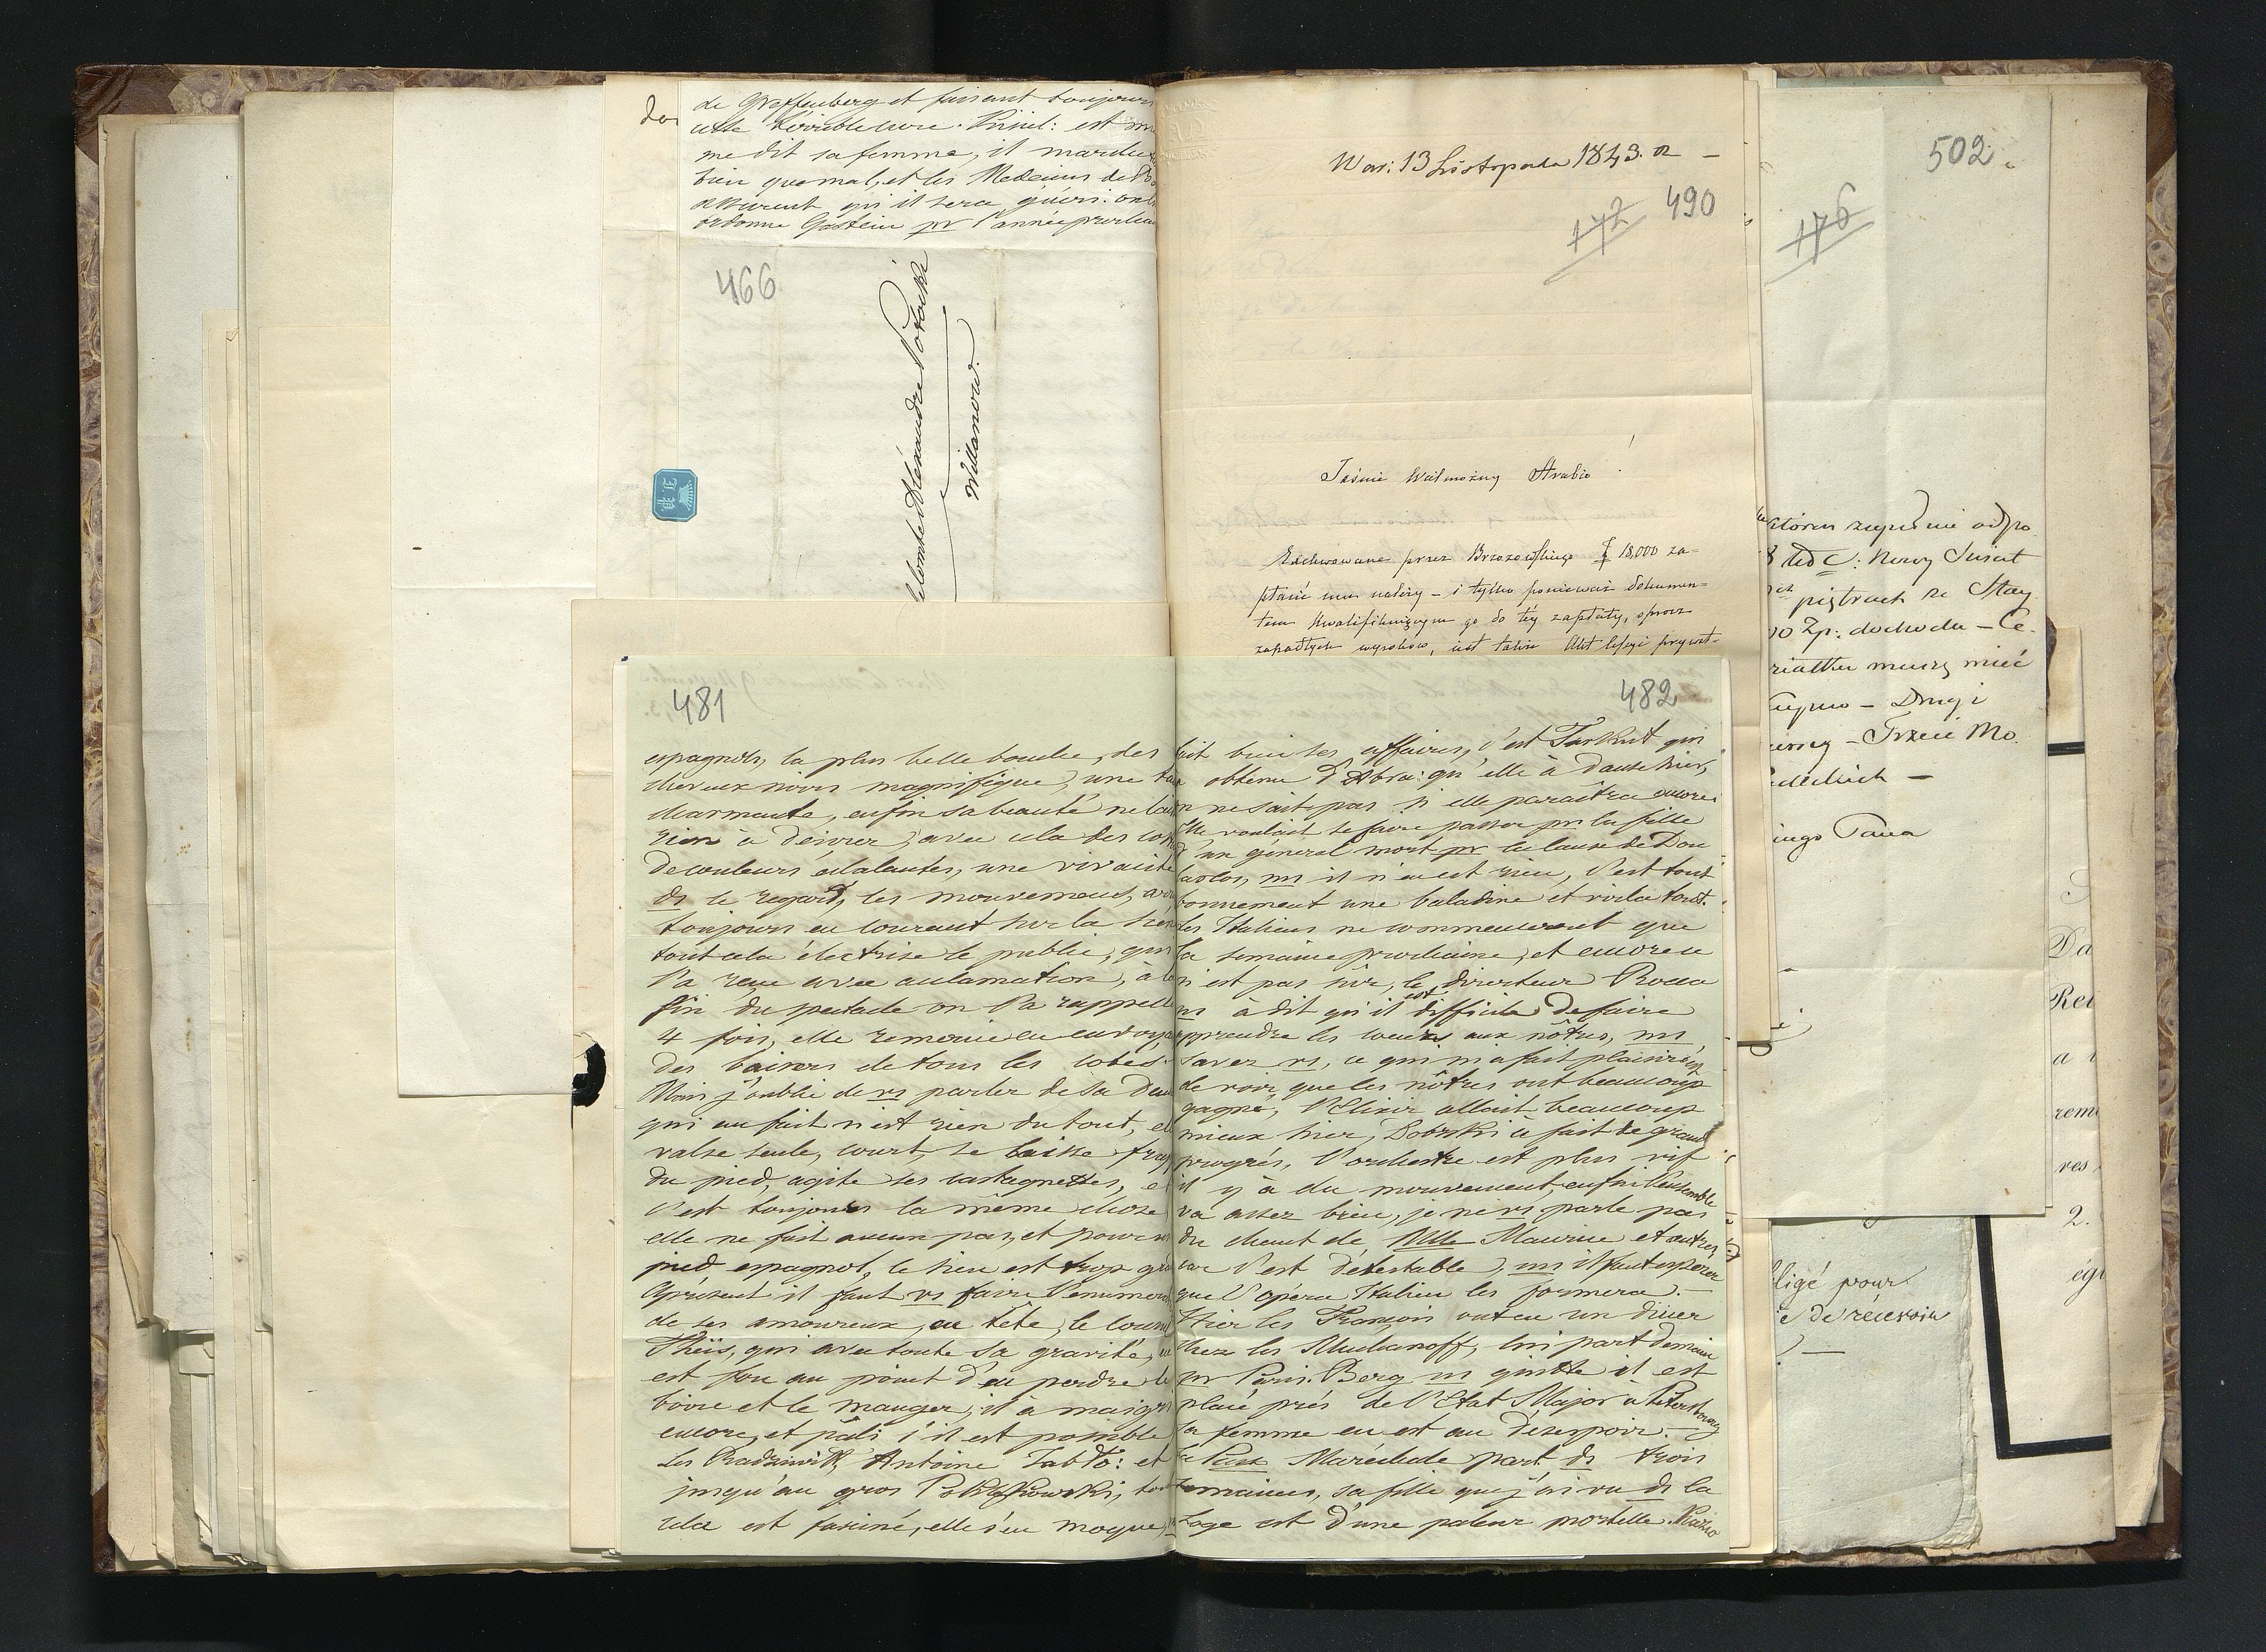 de Graffenberg et faisant toujours
cette terrible cure. est
me dit sa femme, il marche
bien que mal, et les Medecins de
assurent qu'il sera guéri. on
ordonne Gastein pr l'année prochai
466
Comte Alexandre Potocki
Willanow.
War: 13 Listopada 1843. r
490
172
Jaśnie Wielmożny Hrabio!
przez Brzozowskiego 18,000 za=
płacić mu należy – i tylko ponieważ dokumen=
tem kwalifikuiącym go do téy zapłaty, oprócz
zapadłych wyroków, iest także Akt Cesyi prywat-
502
176
któren zupełnie odpo
Nowy Swiat
piętrach ze Stay
00 Zp: dochodu – Ce.
muszę mieć
– Drugi
– Trzeci Mo.
Pana
481
espagnols, la plus belle bouche, des
cheveux noirs magnifique, une ta
charmante, enfin sa beauté ne lai
rien à désirer, avec cela des cos
de couleurs éclatantes, une vivacité
ds le regard, les mouvemens, arr
toujours en courant sur la scen
tout cela électrise le public, qui
l'a reçue avec aclamation, à la
fin du spectacle on l'a rappellé
4 fois, elle remercie en envoya
des baisers de tous les cotés.
Mais j'oublie de vs parler de sa dan
qui au fait n'est rien du tout, el
valse seule, court, se baisse frap
du pied, agite ses castagnettes, et
c'est toujours la même chose
elle ne fait aucun pas, et pour un
pied espagnol, le sien est trop gra
Aprésent il faut vs faire l'enumera
de ses amoureux, en tête, le
Theïs, qui avec toute sa gravité, en
est fou au point d'en perdre le
boire et le manger, il a maigri
encore, et pâli s'il est possible
Les Radziwiłł, Antoine Jabło: et
jusqu'au gros tou
cela est fasciné, elle s'en moque
482
fait bien ses affaires, c'est Turkut qui
a obtenu d'Abra: qu'elle à dansé hier,
on ne sait pas si elle paraîtra encore.
Elle voulait se faire passer pr la fille
d'un général mort pr la cause de Don
Carlos, ms il n'en est rien, c'est tout
bonnement une baladine et voila tout.
Les Italiens ne commenceront que
la semaine prochaine, et encore ce
n'est pas sûr, le directeur Rocca
ns à dit qu'il est difficile de faire
apprendre les coeurs aux nôtres, ms,
savez vs, ce qui m'a fait plaisir est
de voir que les nôtres ont beaucoup
gagné, l'Elixir allait beaucoup
mieux hier, Dobrski à fait de grands
progrés, l'orchestre est plus vif
il y à du mouvement, enfin l'ensemble
va assez bien, je ne vs parle pas
du chant de Mlle Maurice et autres,
car c'est détestable, ms il faut espérer
que l'opéra Italien les formera. –
Hier les François ont eu un diner
chez les Muchanoff, lui part demain
pr Paris. Berg ns quitte il est
placé près de l'Etat Major à Petersbourg
sa femme en est au désespoir. –
La Psse Maréchale part ds trois
semaines, sa fille que j'ai vu ds la
Loge est d'une paleur mortelle.
Da
a
rem
res
2.
ligé pour
de recevoir